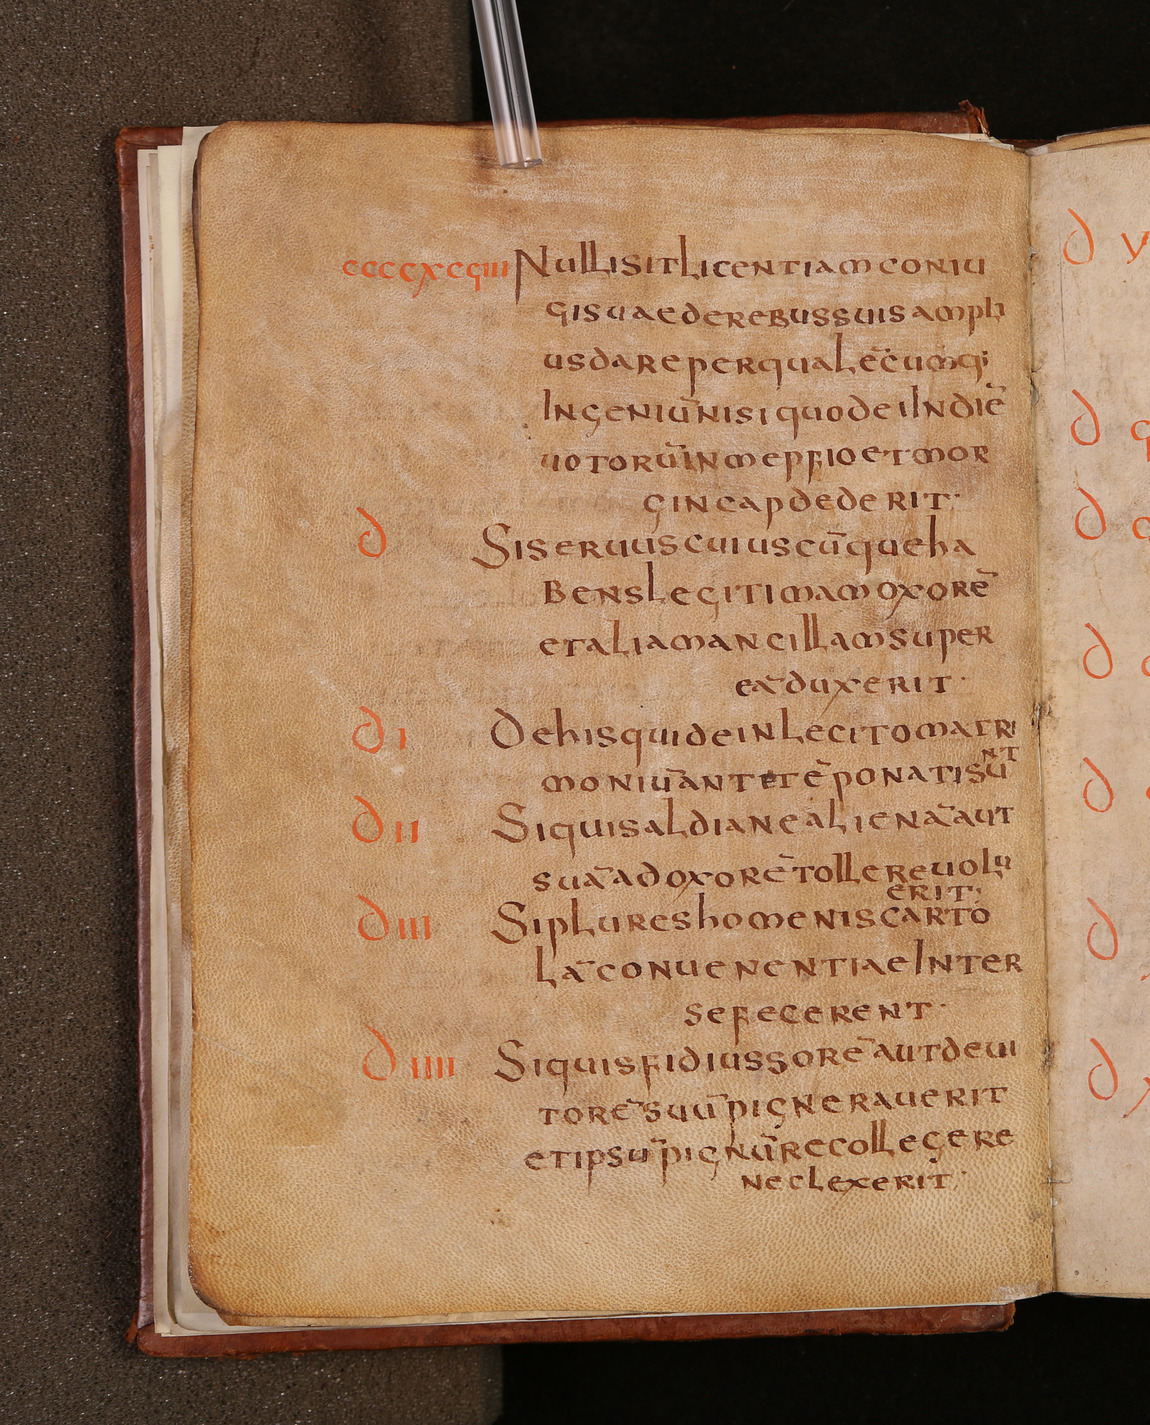 ccccxcviiii Nulli sit licentiam coniu
gi suae de rebus suis ampli
us dare per qualēcumq;
Ingeniū nisi quod ei In diē
uotorū In mepfio et mor
gincap dederit·
d Si seruus cuiuscūque ha
bens legitimam oxorē
et alia mancillam super
eā duxerit·
di De his qui de inlecito matri
moniū ante tēpo nati sūnt
dii Si quis aldiane alienā aut
suā ad oxorē tollere uolu
erit·
diii Si plures homenis carto
lā conuenentiae Inter
se fecerent·
diiii Si quis fidiussorē aut deui
torē suū pignerauerit
et ipsū pignū recollegere
neclexerit·
d
d
d
d
d
d
d